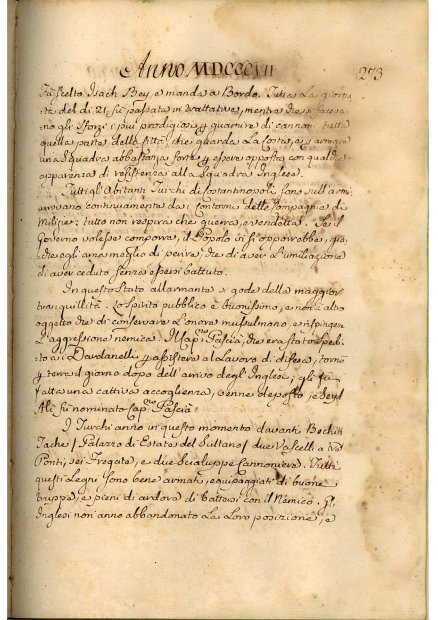 Anno MDCCCVII 273
Fu scelto Isach Bey, e manda a Bordo. Tutta La giorna-
ta del di 21. fu passata in trattative, mentre che si faceva-
no gli sforzi i piu prodigiosi per guarnire di cannoni tutta
quella parte della Città, che guarda La Costa, e per armare
una Squadra abbastanza forte per essere opposta con qualche
apparenza di resistenza alla Squadra Inglese.
Tutti gli Abitanti Turchi di Costantinopoli sono sull'armi
arrivano continuamente da Contorni delle Compagnie di
Milizie: tutto non respira che guerra, e vendetta. Se il
Governo volesse comporre, il Popolo vi si opporrebbe, giac-
che egli ama meglio di perire, che di aver L'umiliazione
di aver ceduto senza essersi battuto.
In questo Stato allarmante si gode della maggior
tranquillità. Lo spirito pubblico è buonissimo, e non à altro
oggetto che di conservare L'onore musulmano e rispinger
L'aggressione nemica. Il Cap.no Pascià, che era stato spedi-
to a i Dardanelli per assistere al lavoro di difesa, torno
per terra il giorno dopo dell'arrivo degl'Inglesi, gli fu
fatta una cattiva accoglienza, venne deposto, e Seyd
Alì fu nominato Cap.no Pascià.
I Turchi anno in questo momento davanti Bechik
Tache / Palazzo di Estate del Sultano / due Vascelli a tre
Ponti, sei Fregate, e due Scialuppe Cannoniere. Tutti
questi Legni sono bene armati, equipaggiati di buone
truppe, e pieni di ardore di battersi con il Nemico. Gl'
Inglesi non anno abbandonato La Loro posizione, e